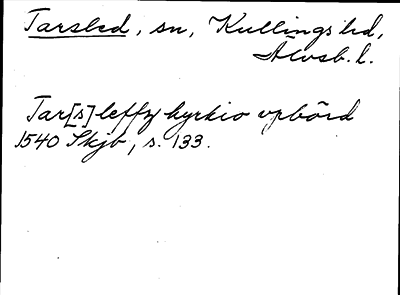 Tarsled, sn, Kullings hd,
Älvsb. l.
Tar[s]leffz kyrkio vpbörd
1540 Skjb, s. 133.